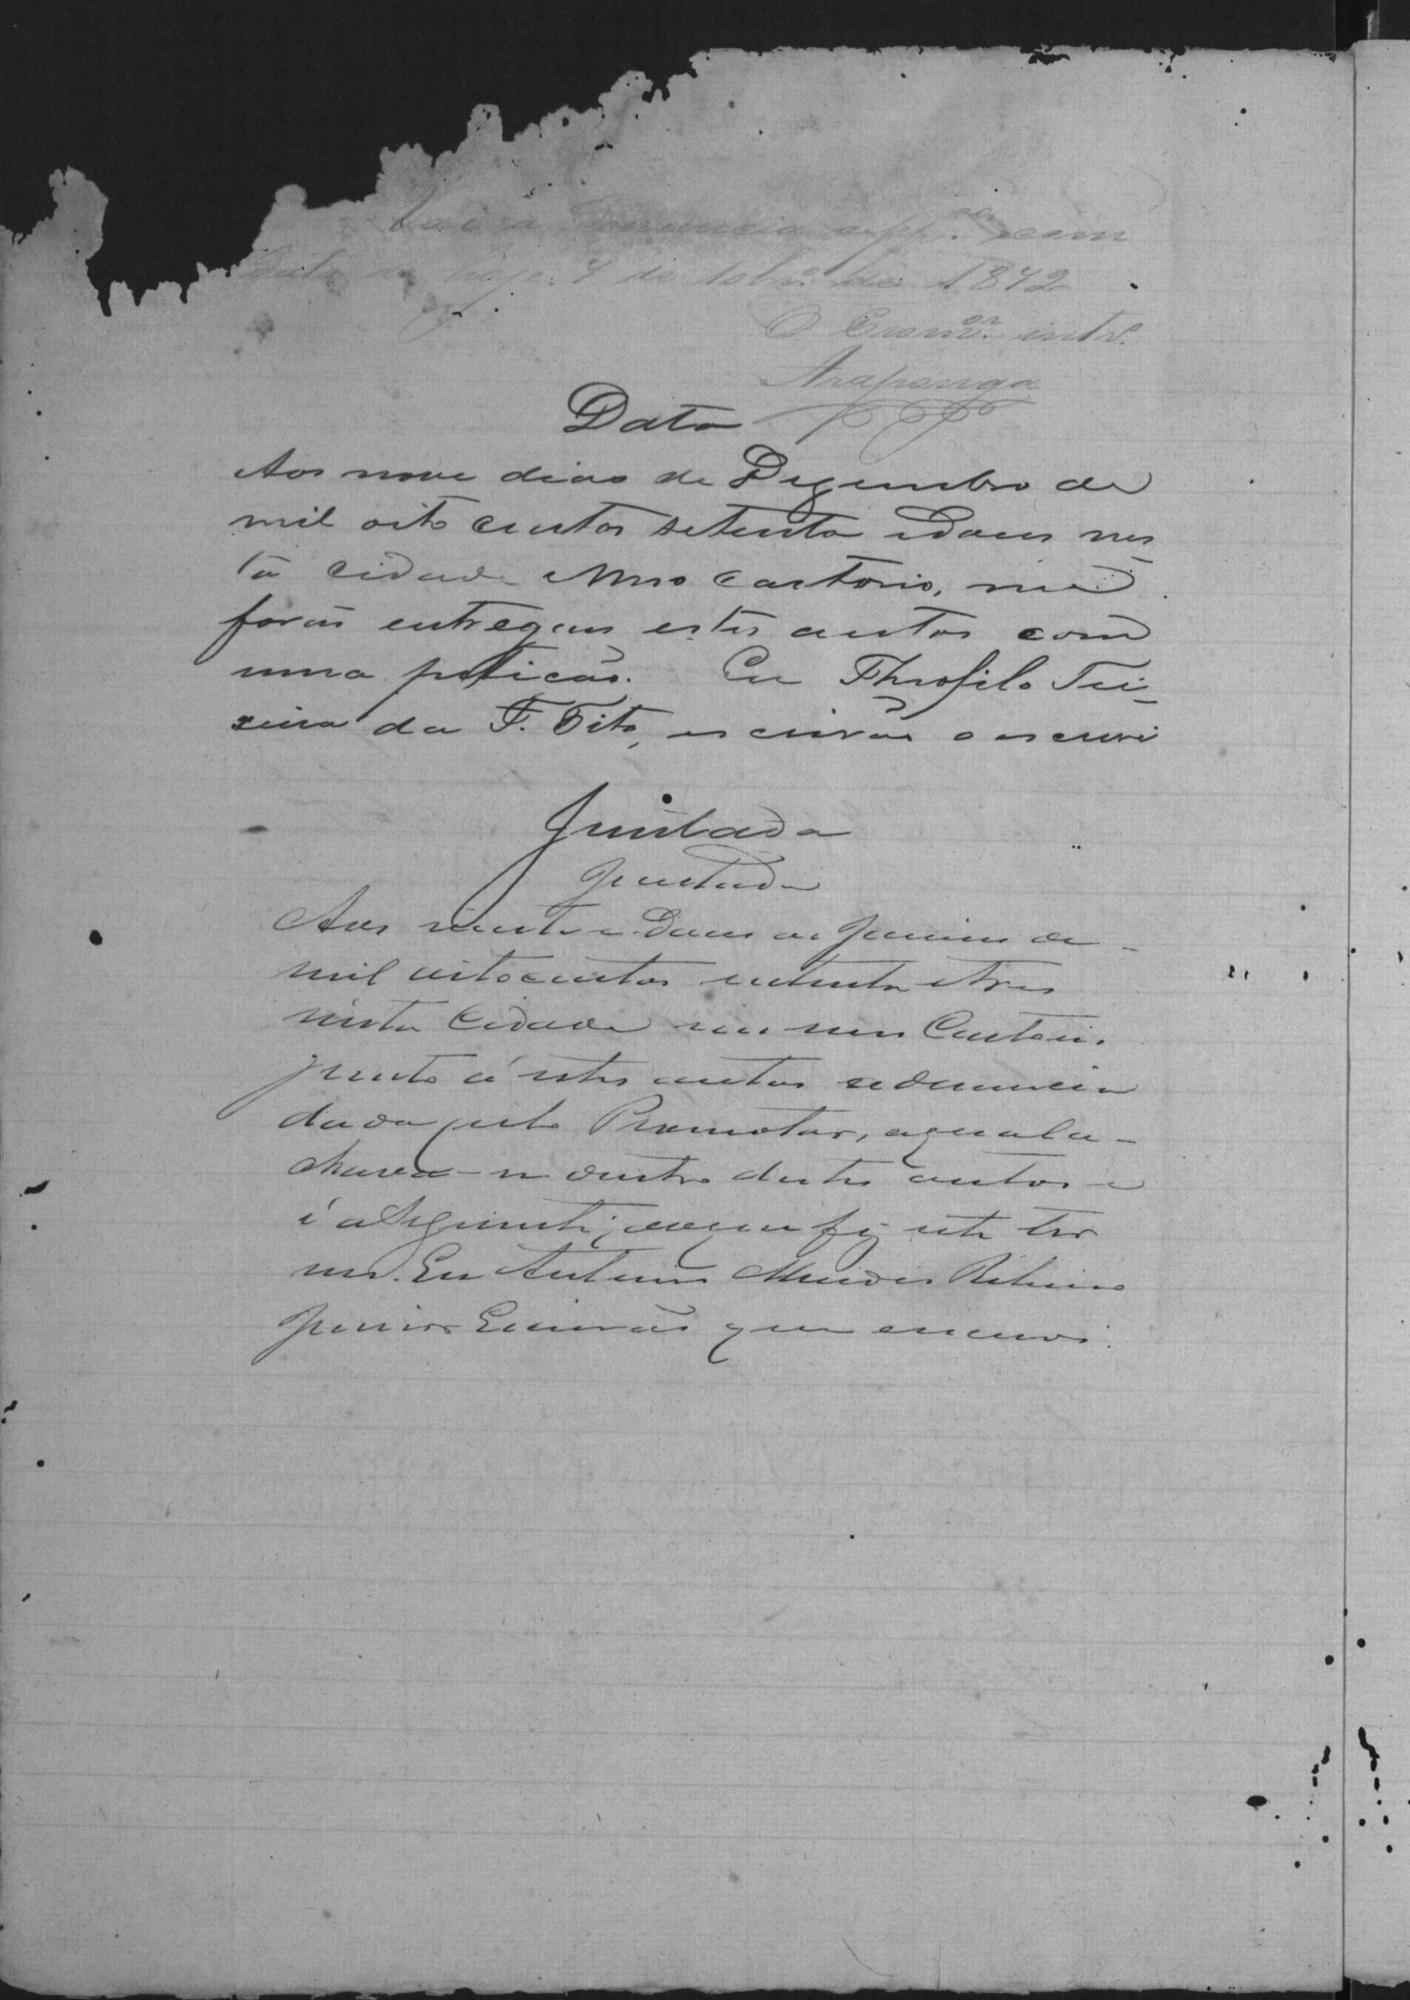 Vai a Denuncia supp.or com
data de hoje. 7 de 1872
O Escriv.am int.o
Araponga
Data
Aos nove dias de Dezembro de
mil oito centos setenta e dous nes
ta cidade e meo cartorio, me
forão entregues estes autos com
uma petição. Eu Theofilo Tei-
xeira da F. Tito, escrivão o escrevi
Juntada
Juntada
Aos vinte e dous de Janeiro de
mil oitocentos setenta e tres
nesta Cidade em meu Cartorio
junto á estes autos a denuncia
dada pelo Promotor, a qual a-
chava-se dentro destes autos e
é a Seguinte; do que fiz este ter
mo. Eu Antonio Mendes Ribeiro
Junior Escrivão que escrevi.